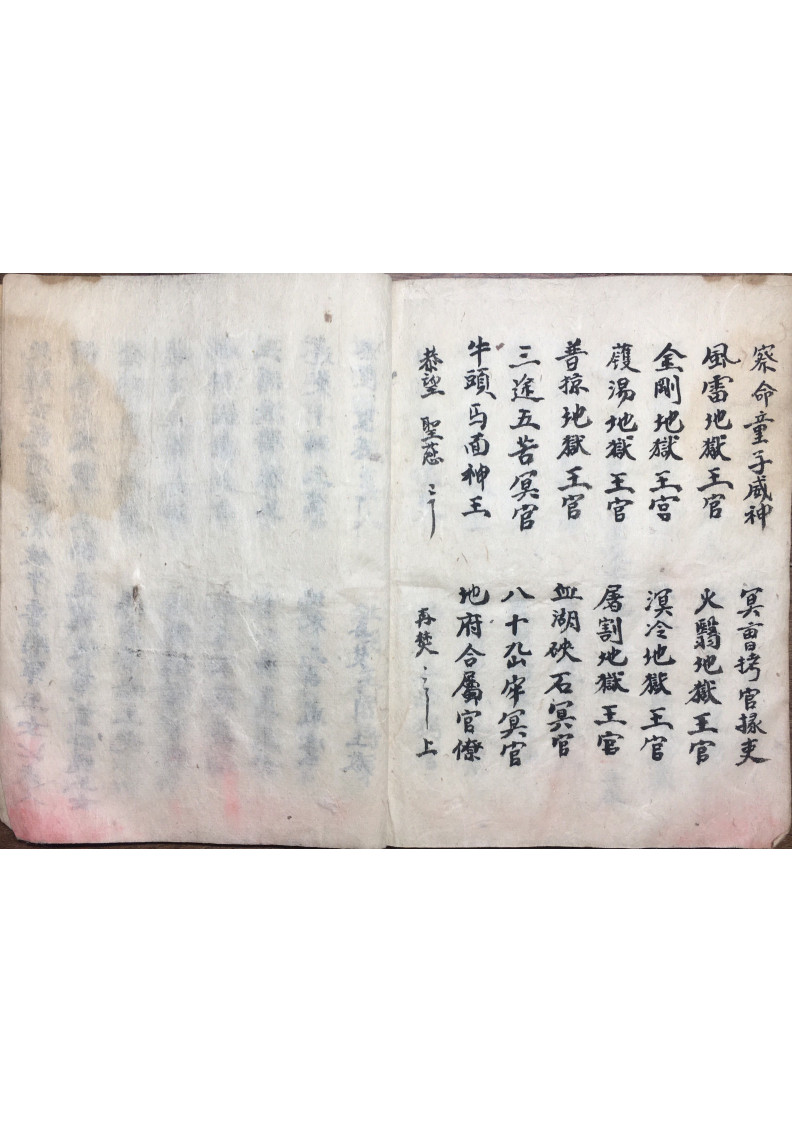 察命童子威神 冥曹拷官掾吏
風雷地獄王官 火翳地獄王官
金剛地獄王宫 溟冷地獄王官
鑊湯地獄王官 屠割地獄王官
普掠地獄王官 血湖硤石冥官
三途五苦冥官 八十四牢冥官
牛頭马面神王 地府合屬官僚
恭望 聖慈 再焚 上